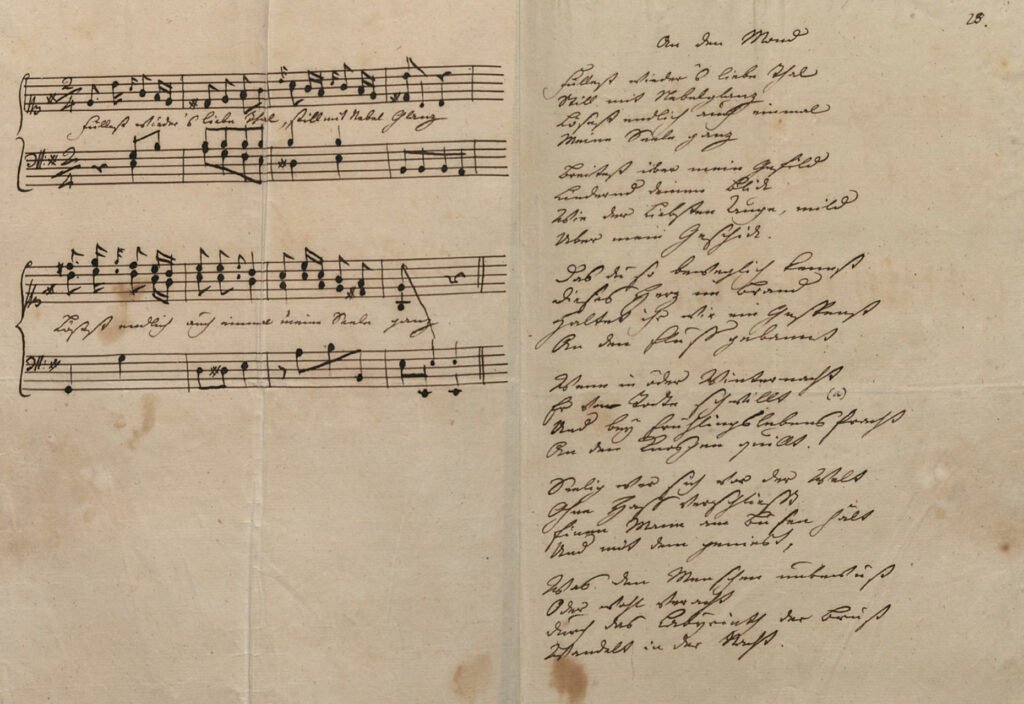 2/4
Füllest wieder's liebe Thal, still mit Nebel Glanz
2/4
Lösest endlich auch einmal meine Seele ganz
28.
An den Mond
Füllest wieder's liebe Thal
Still mit Nebelglanz
Lösest endlich auch einmal
Meine Seele ganz
Breitest über mein Gefild
Lindernd deinen Blick
Wie der Liebsten Auge, mild
Über mein Geschick.
Das du so beweglich kennst
Dieses Herz im Brand
Haltet ihr wie ein Gespenst
An den Fluss gebannt
Wenn in öder Winternacht
Er vom Todte schwillt (a)
Und bey Frühlingslebens Pracht
An den Knospen quillt.
Seelig wer sich vor der Welt
Ohne Hass verschliesst
Einen Mann am Busen hält
Und mit dem geniest,
Was den Menschen unbewust
Oder wohl veracht
Durch das Labyrinth der Brust
Wandelt in der Nacht.